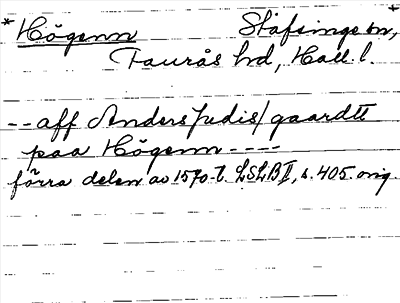 *Högenn Stafsinge sn,*
Faurås hd, Hall. l.
-- aff Anders Judis/ gaardtt
paa Högenn ----
förra delen av 1570-t. LSLB II, s. 405. orig.